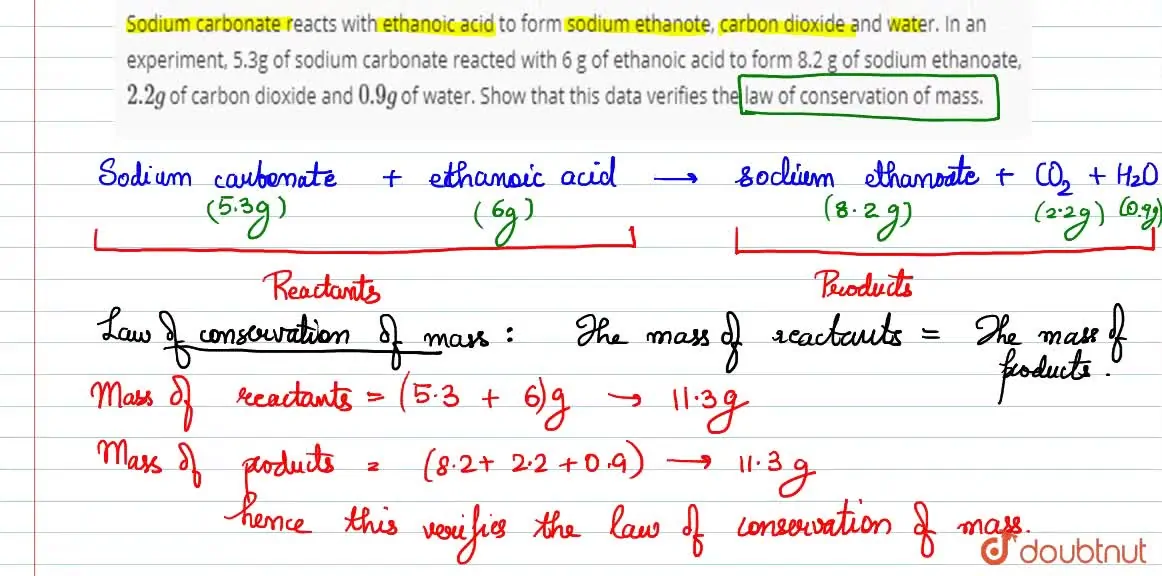 Sodium carbonate reacts with ethanoic acid to form sodium ethanote, carbon dioxide and water. In an
experiment, 5.3g of sodium carbonate reacted with 6 g of ethanoic acid to form 8.2 g of sodium ethanoate,
2.2g of carbon dioxide and 0.9g of water. Show that this data verifies the law of conservation of mass.
Sodium carbonate + ethanoic acid → sodium ethanoate + CO2 + H2O
(5.3g) (6g) (8.2g) (2.2g) (0.9g)
Reactants Products
Law of conservation of mass : The mass of reactants = The mass of
products.
Mass of reactants = (5.3 + 6)g → 11.3g
Mass of products = (8.2 + 2.2 + 0.9) → 11.3 g
hence this verifies the law of conservation of mass.
doubtnut